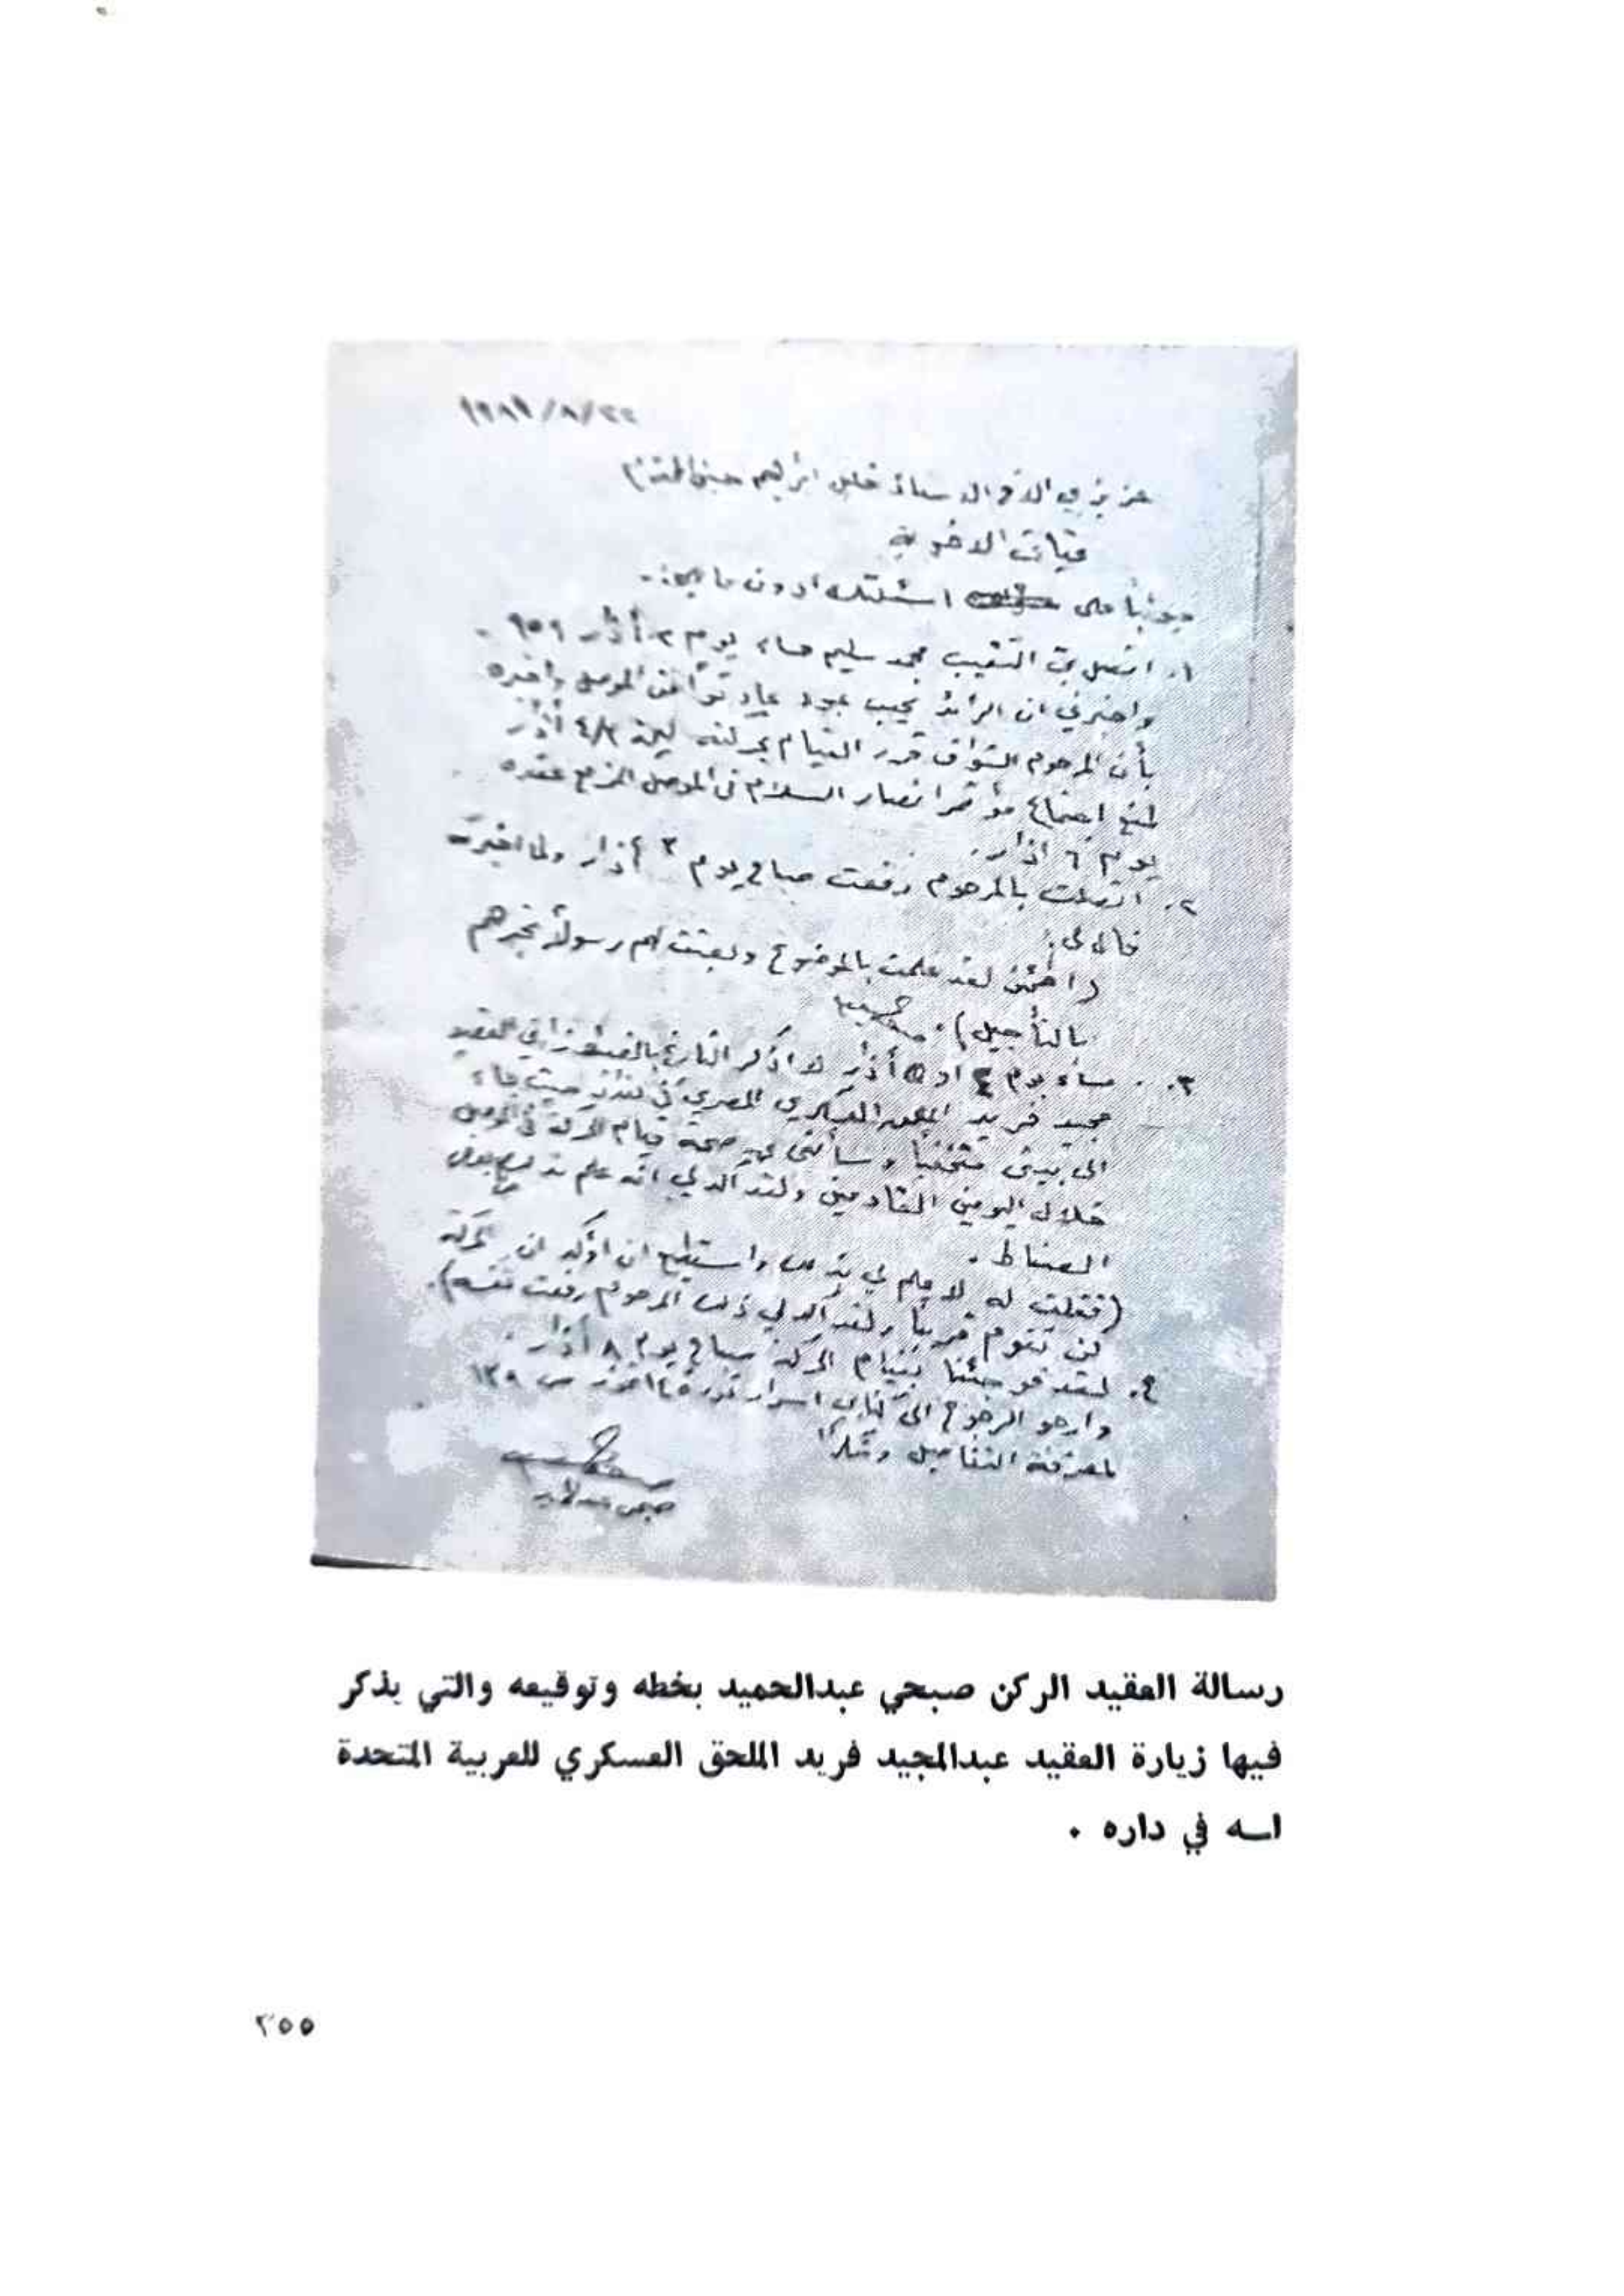 عزيزي الاخ الاستاذ خليل ابراهيم حسين المحترم
تحيات الاخوية
جواباً على اسئلتك ادون ما يلي :-
١. اتصل بي النقيب محمد سليم مساء يوم ٢ أذار ٩٥٩ -
واخبرني ان الرائد نجيب عاد تواً من الموصل واخبره
بأن المرحوم الشواف قرر القيام بحركته ليلة ٤/٣ أذار
لمنع اجتماع مؤتمر انصار السلام في الموصل المزمع عقده
يوم ٦ اذار.
٢. اتصلت بالمرحوم رفعت صباح يوم ٣ أذار ولما اخبرته
قال لي:
(اطمئن لقد علمت بالموضوع وبعثت لهم رسولاً يخبرهم
بالتأجيل).
٣. مساء يوم ٤ او ٥ أذار لا اذكر التاريخ بالضبط زارني العقيد
مجيد فريد الملحق العسكري المصري في بغداد حيث جاء
الى بيتي متخفياً وسألني عن صحة قيام الحركة في الموصل
خلال اليومين القادمين ولقد اكد لي انه علم بذلك من بعض
الضباط .
(فقلت له لا علم لي بذلك واستطيع ان اؤكد ان الحركة
لن تقوم قريباً ولقد أكد لي ذلك المرحوم رفعت نفسه).
٤. لقد فوجئنا بقيام الحركة صباح يوم ٨ أذار .
وارجو الرجوع الى كتابي اسرار ثورة ١٤ تموز ص ١٣٩
لمعرفة التفاصيل وشكراً
صبحي عبدالحميد
رسالة العقيد الركن صبحي عبدالحميد بخطه وتوقيعه والتي يذكر
فيها زيارة العقيد عبدالمجيد فريد الملحق العسكري للعربية المتحدة
اسه في داره .
٢٥٥